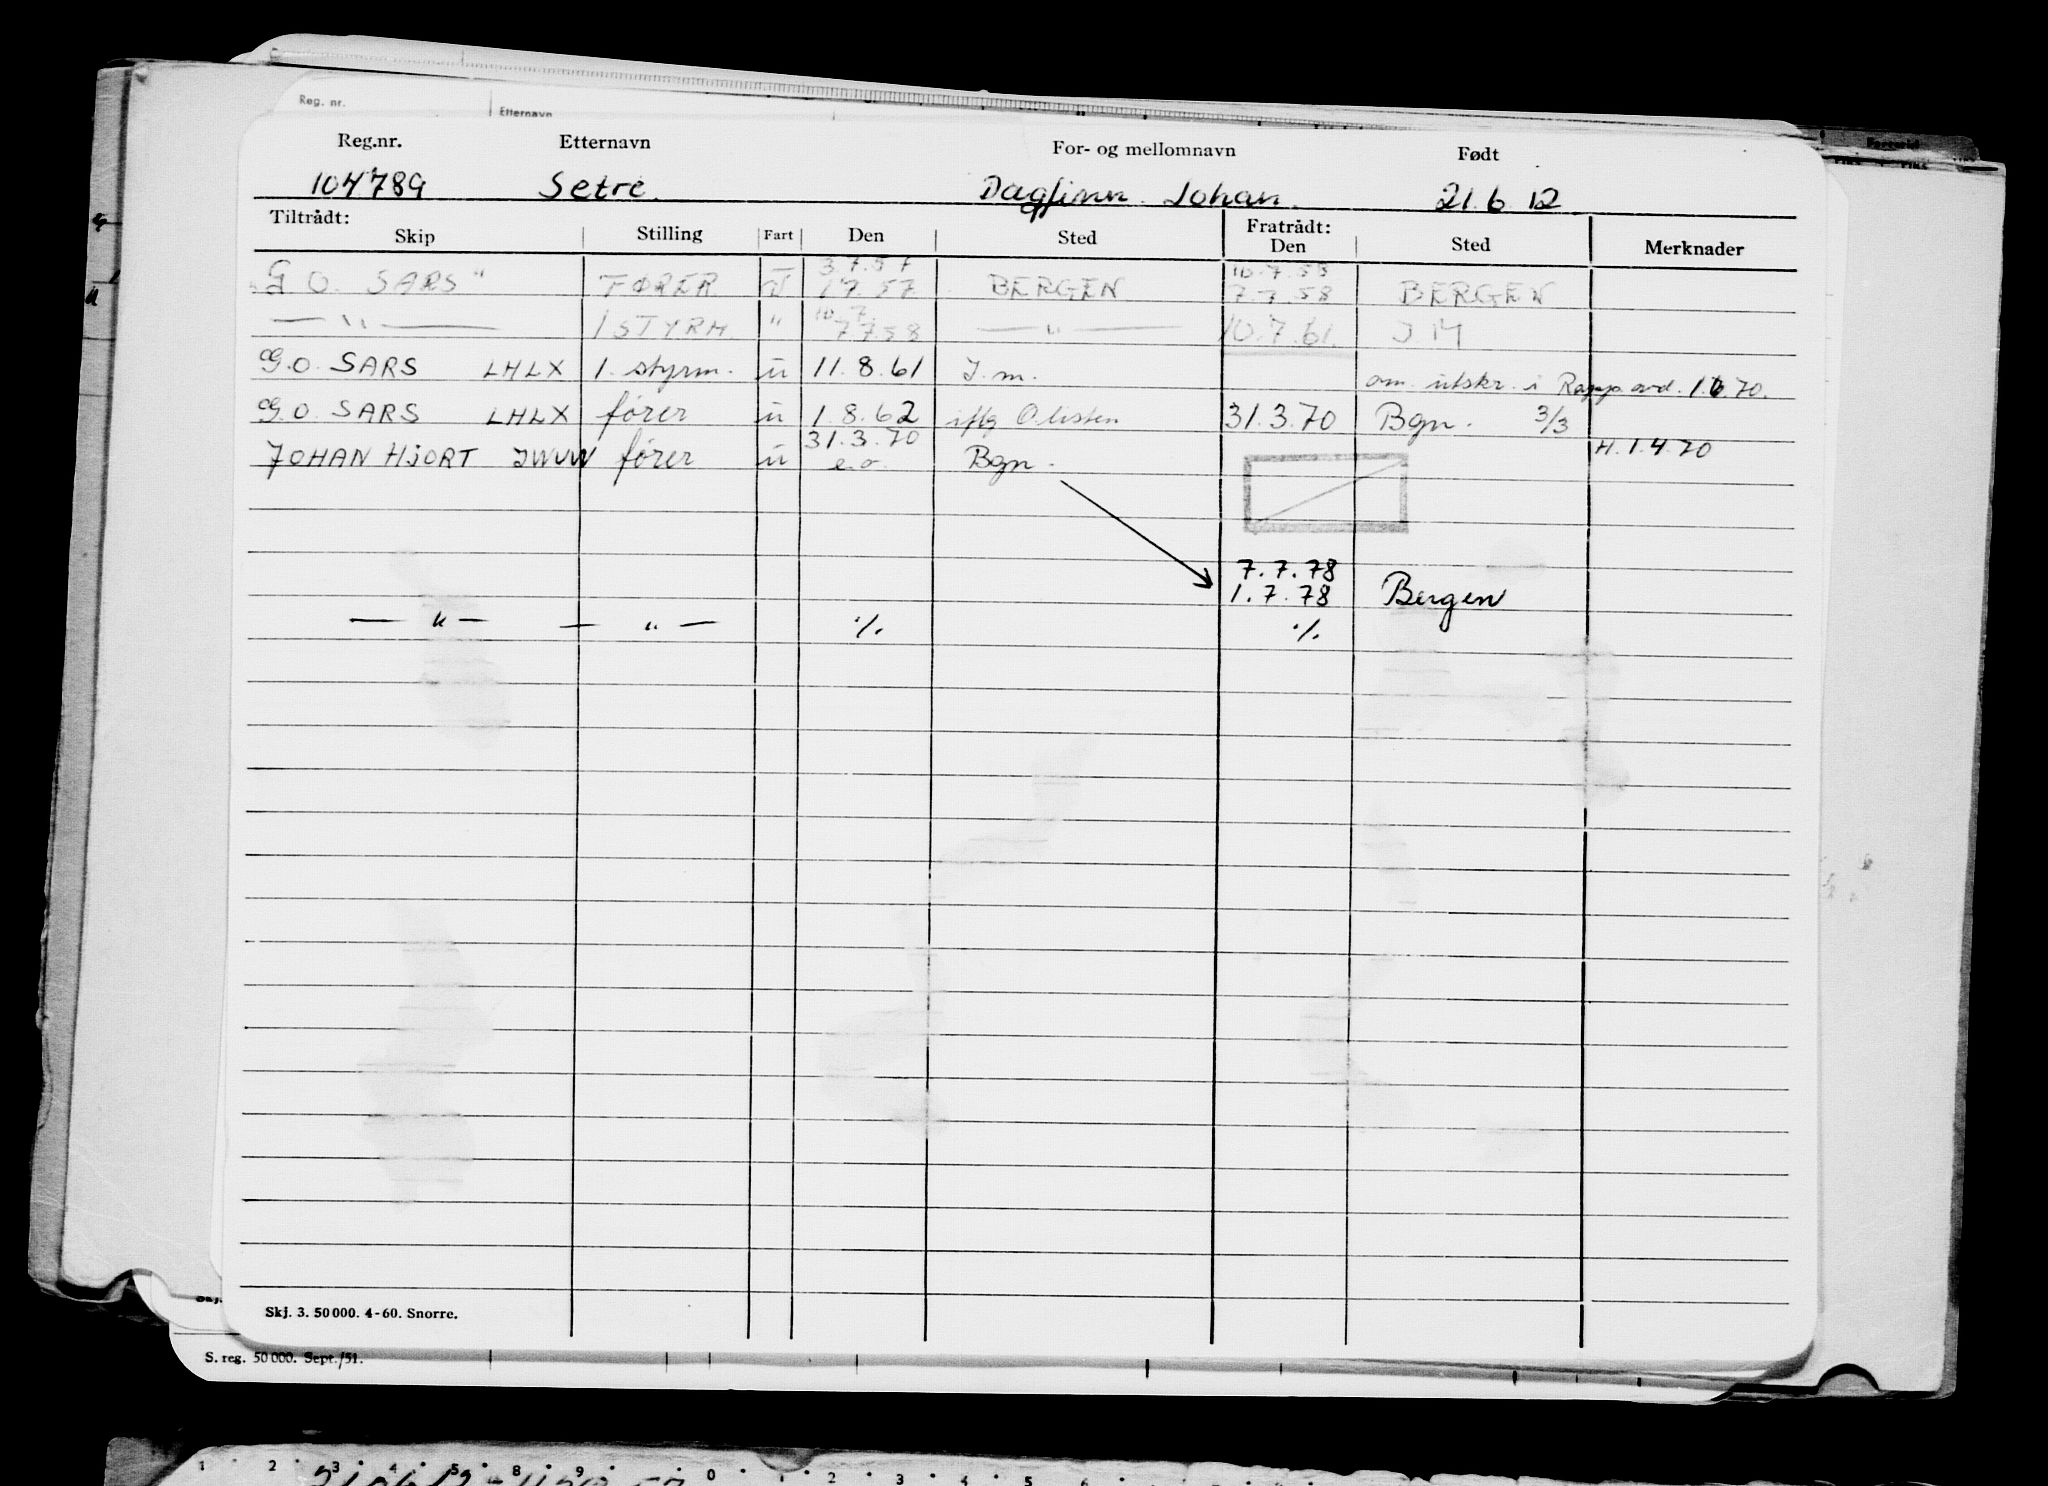 Reg. nr. Etternavn
Reg.nr. Etternavn For- og mellomnavn Født
104789 Setre. Dagfinn Johan. 21.6.12
Tiltrådt: Fratrådt:
Skip Stilling Fart Den Sted Den Sted Merknader
3.7.57 10.7.58
G O. SARS" FØRER U 1 7 57 BERGEN 7.7.58 BERGEN
10.7.
— " — 1 STYRM. " 7 7 58 — " — 10.7.61. J.M
G.O. SARS LHLX 1. styrm. u 11.8.61 J.m. om. utskr. i Rapp.avd. 1.6.70.
G.O. SARS LHLX fører u 1.8.62 iflg O.listen 31.3.70 Bgn. 3/3
31.3.70
JOHAN HJORT JWUW fører u e.o. Bgn. H.1.4.70
7.7.78
1.7.78 Bergen
— " — — " — ./. ./.
Skj. 3. 50 000. 4-60. Snorre.
S. reg. 50 000. Sept./51.